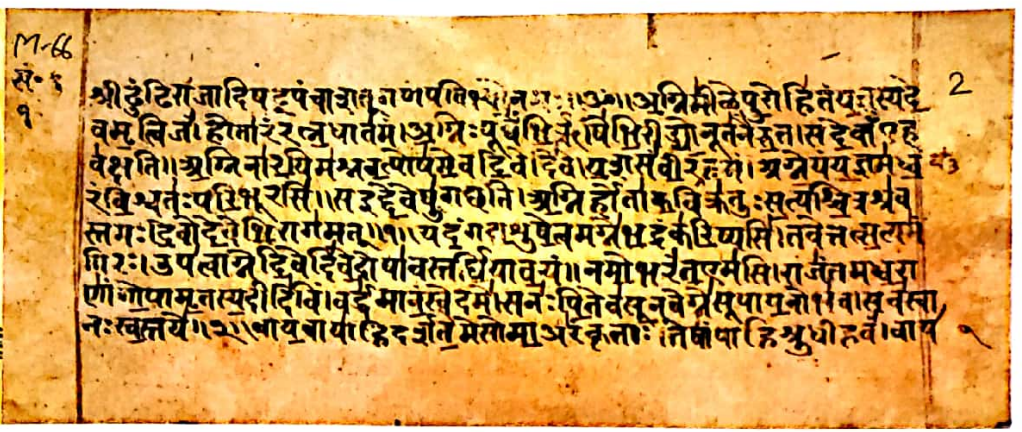 M-66
सं॰ १
१
2
श्रीढुंढिराजादिषट्पंचाशत्गणपतिभ्योनमः॥ॐ॥अग्निमीळेपुरोहितंयज्ञस्यदे
वमृत्विजं।होतारंरत्नधातमं।अग्निःपूर्वेभिर्ऋषिभिरीड्योनूतनैरुत।सदेवाँएह
वक्षति॥अग्निनारयिमश्नवत्पोषमेवदिवेदिवे।यशसंवीरवत्तमं।अग्नेयंयज्ञमध्व
रंविश्वतःपरिभूरसि॥सइद्देवेषुगच्छति।अग्निर्होताकविक्रतुःसत्यश्चित्रश्रव
स्तमः।देवोदेवेभिरागमत्॥१॥यदंगदाशुषेत्वमग्नेभद्रंकरिष्यसि।तवेत्तत्सत्यमं
गिरः।उपत्वाग्नेदिवेदिवेदोषावस्तर्धियावयं॥नमोभरंतएमसि।राजंतमध्वरा
णांगोपामृतस्यदीदिविं।वर्द्धमानंस्वेदमे।सनःपितेवसूनवेग्नेसूपायनोभव।सचस्वा
नःस्वस्तये॥२॥वायवायाहिदर्शतेमेसोमाअरंकृताः।तेषांपाहिश्रुधीहवं।वाय १